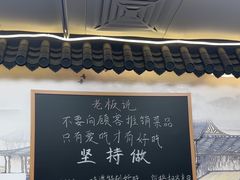 老板说
不要向顾客推销菜品
只有爱吃才有好吃
坚持做